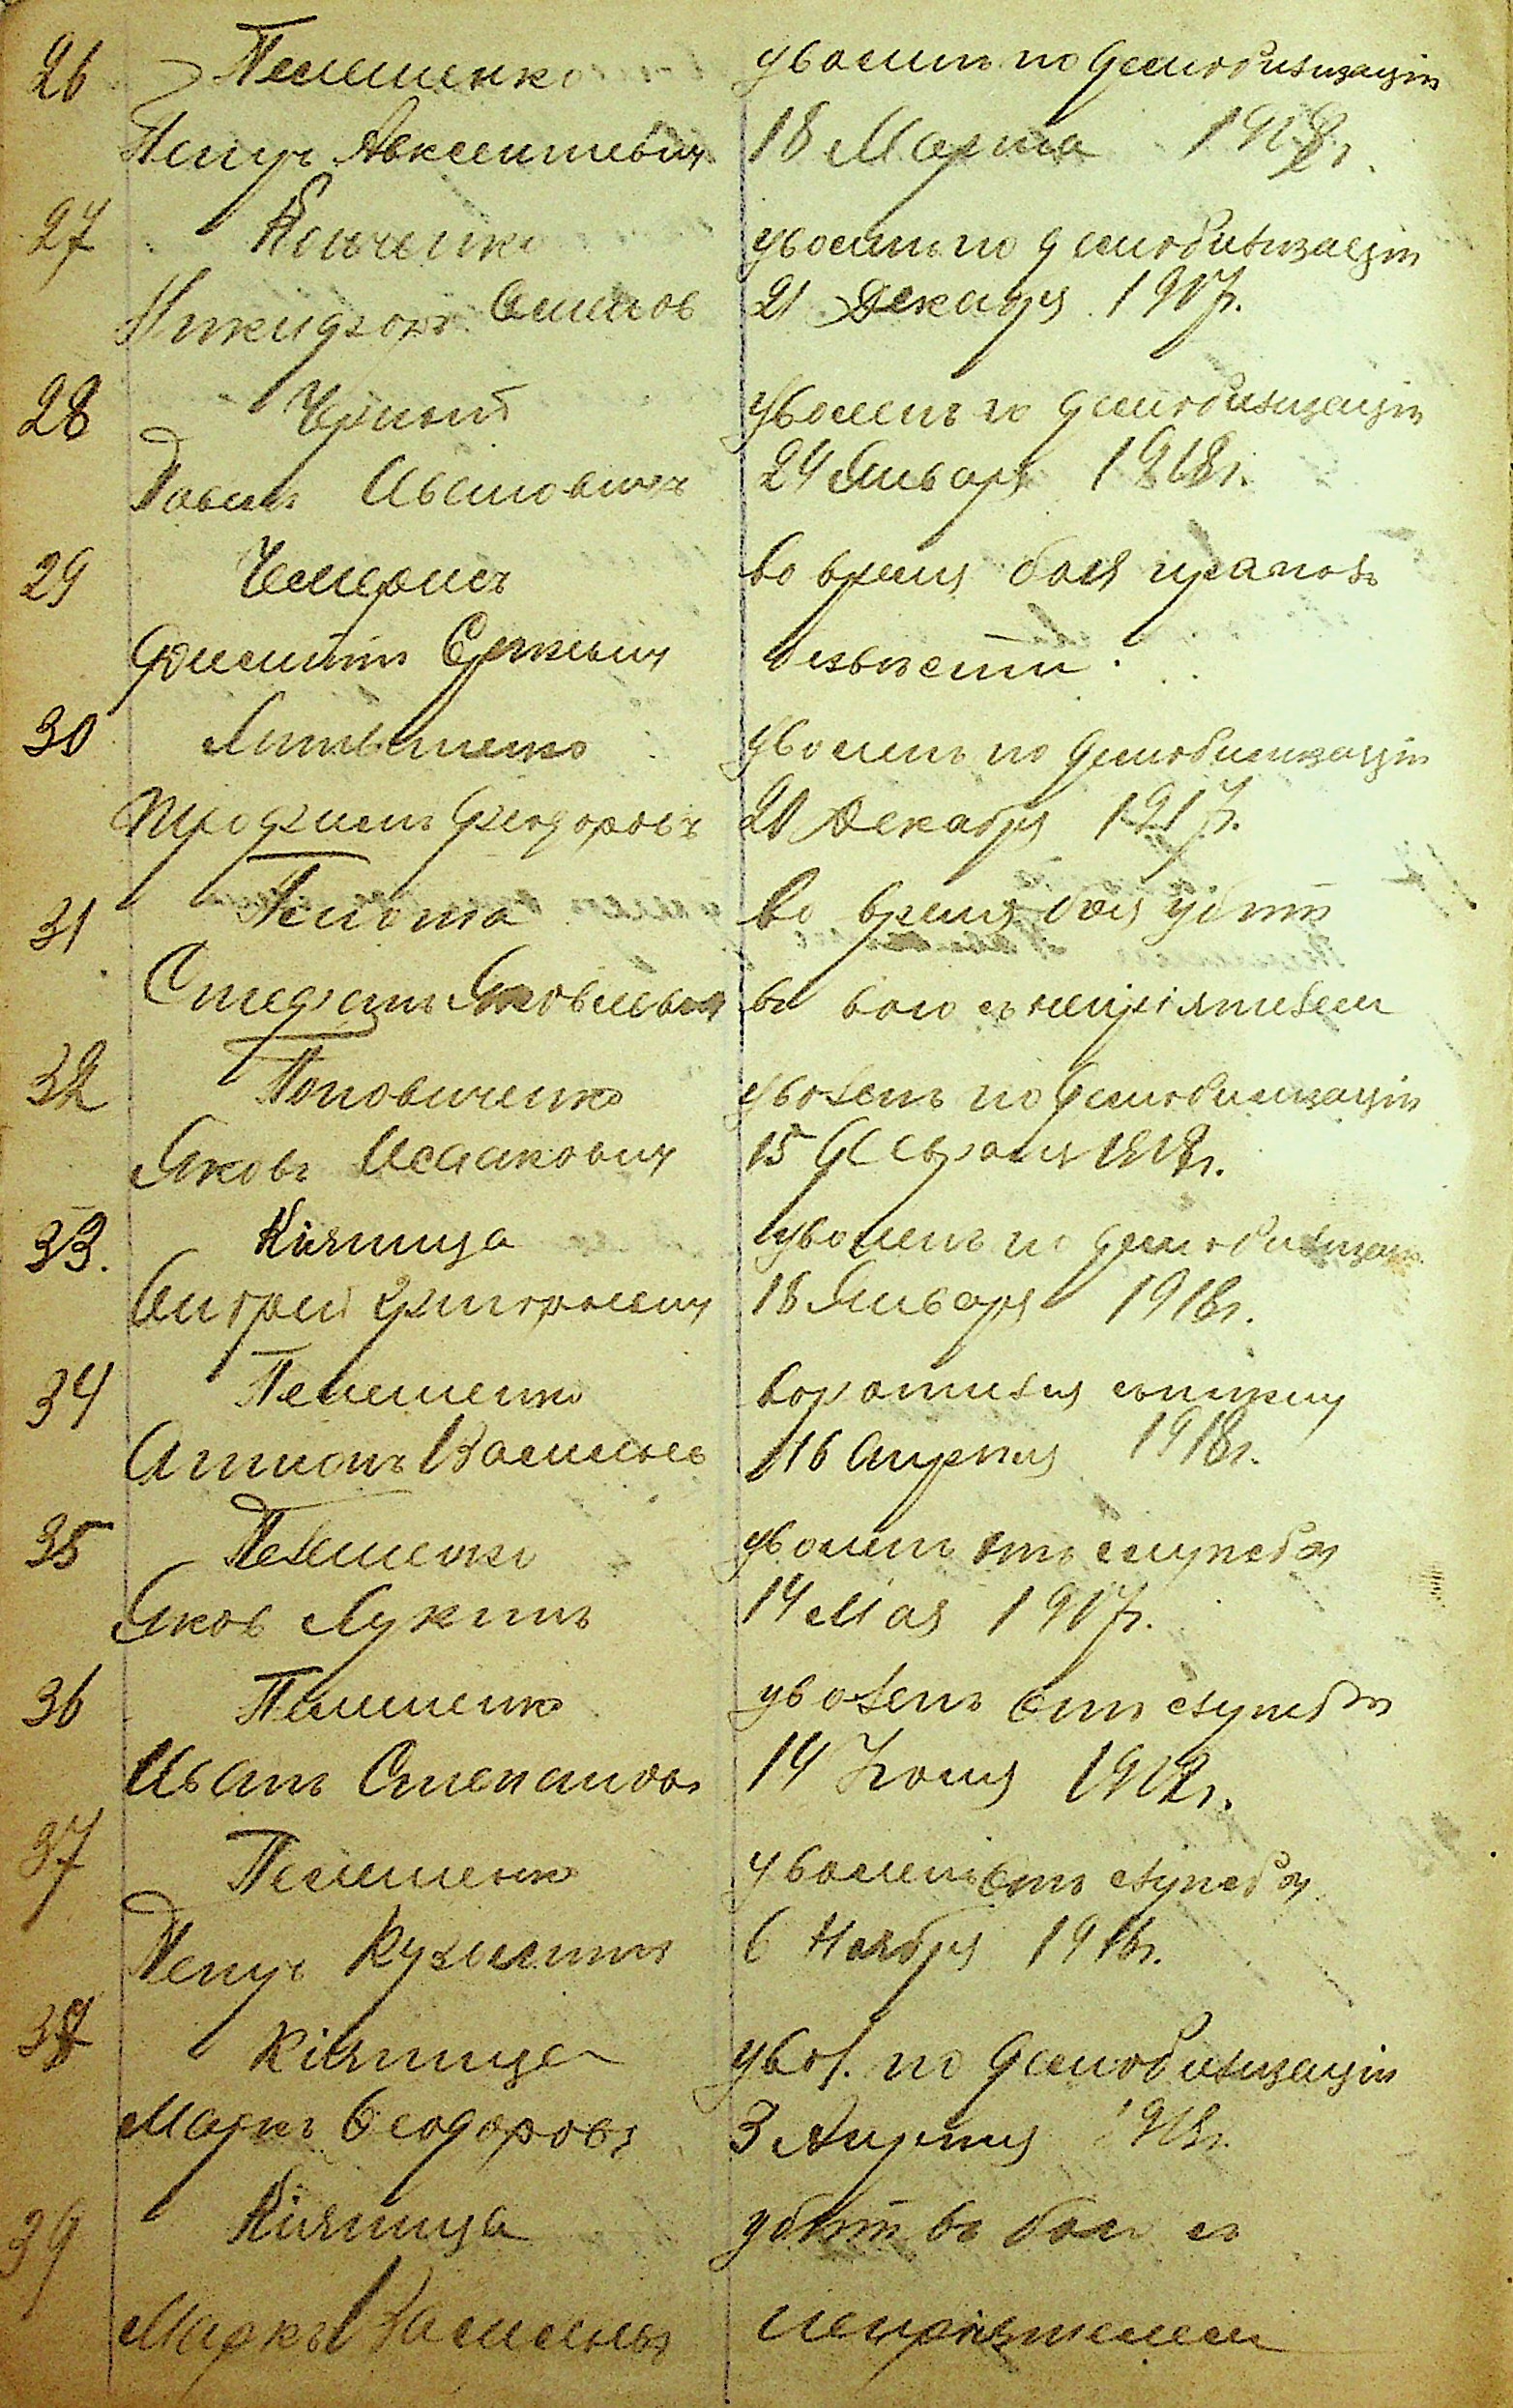 26 Пелешенко уволенъ по демобилизаціи
Петръ Авксентіевичъ 18 Марта 1918г.
27 уволенъ по демобилизаціи
Никифоръ Семенов 21 Декабря 1917г.
28 Черный уволенъ по демобилизаціи
Павелъ Ивановичъ 24 Январь 1918г.
29 Чемерисъ Во время боя пропалъ
Филиппъ Сергѣевич безвѣсти.
30 Литвиненко уволенъ по демобилизаціи
Трофимъ Феодоровъ 20 Декабря 1917г.
31 Во время боя убитъ
Стефанъ Яковлевич въ бою съ непріятелем
32 Поповиченко уволенъ по демобилизаціи
Яковъ Исаакович 15 Февраля 1918г.
33. Кіяница уволенъ по демобилизац
Андрей Григорьевич 18 Января 1918г.
34 Пелешенко
Антонъ Васильев 16 Апрѣля 1918г.
35 Пелешенко уволенъ отъ службы
Яков Лукинъ 14 Мая 1917г.
36 Пелешенко уволенъ отъ службы
Иванъ Степанов 14 Іюня
37 Пелешенко уволенъ отъ службы
Петръ Кузьминъ 6 Ноября 1916г.
38 Кіяница увол. по демобилизаціи
Маркъ Феодоровъ 3 Апрѣля 1918г.
39 Кіяница убитъ въ бою съ
Маркъ Васильевъ непріятелем